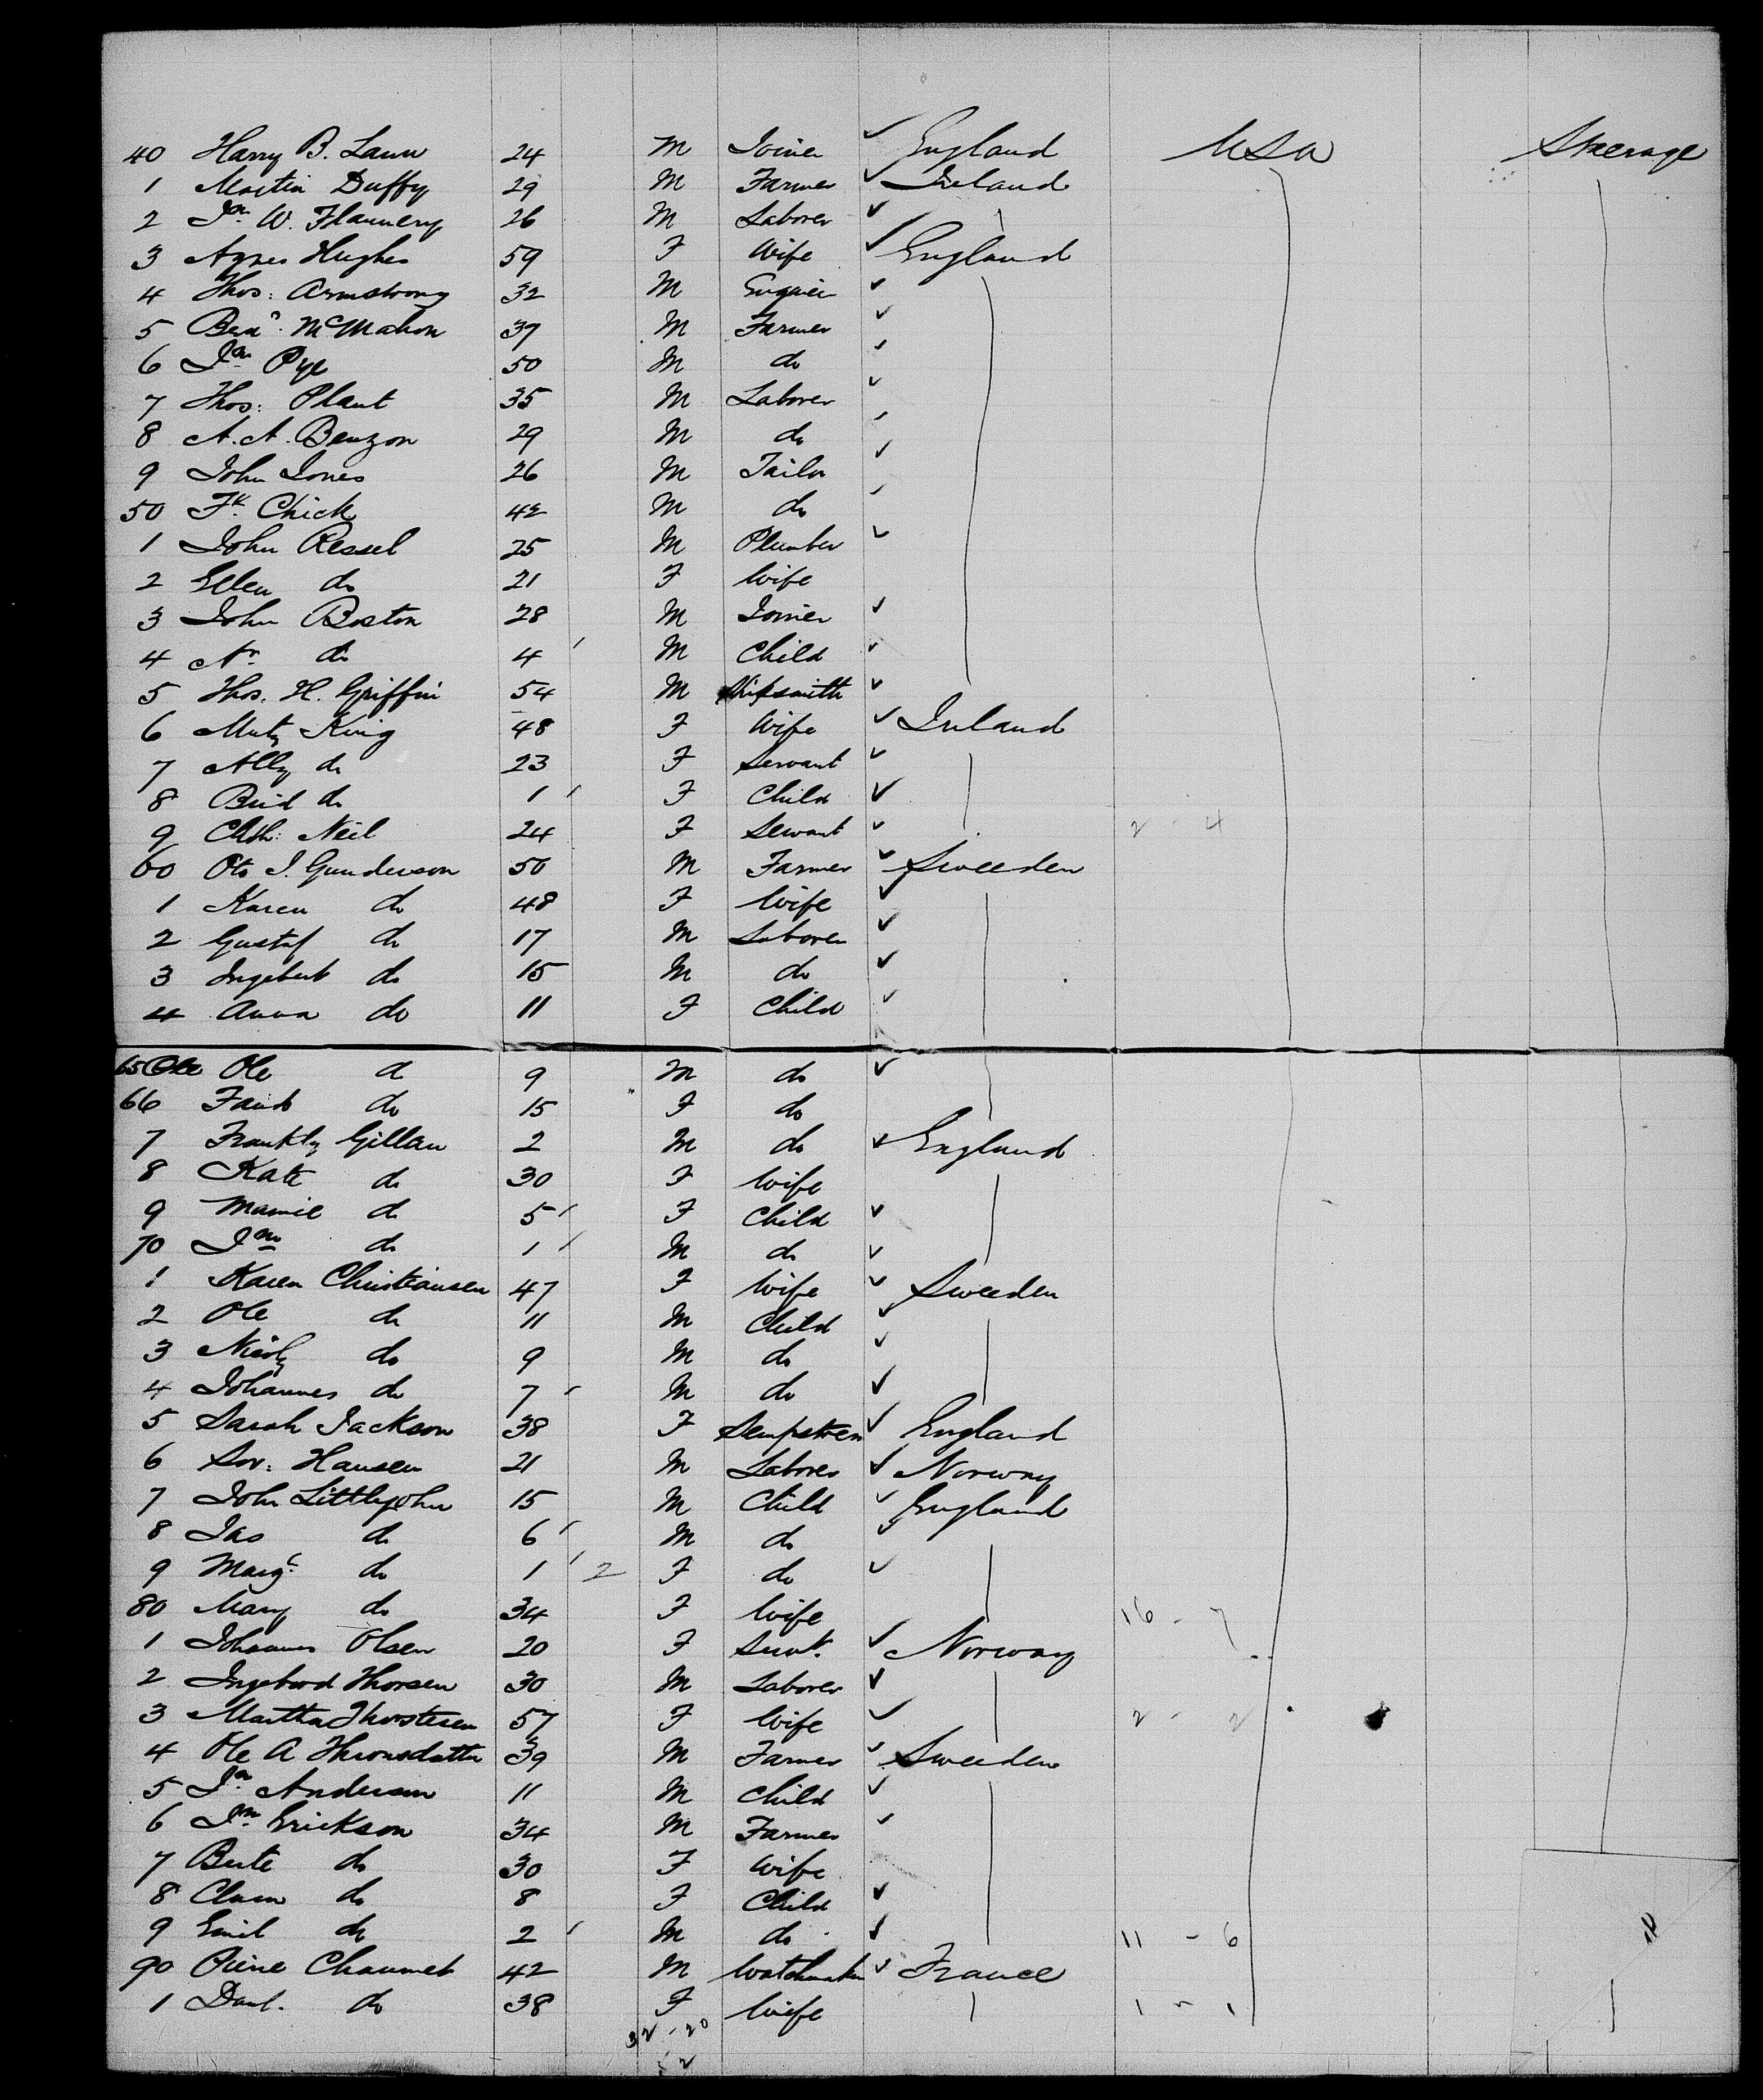 40 Harry B. Laun 24 M Joiner ✓ England USA Steerage
1 Martin Duffy 29 M Farmer ✓ Ireland
2 Jn W. Flannery 26 M Laborer ✓
3 Agnes Hughes 59 F Wife ✓ England
4 Thos: Armstrong 32 M Engnier ✓
5 Benn. McMahon 37 M Farmer ✓
6 Jas Pye 50 M do ✓
7 Thos: Plant 35 M Laborer ✓
8 A. A. Benzon 29 M do ✓
9 John Jones 26 M Tailor ✓
50 Fk. Chick 42 M do ✓
1 John Ressel 25 M Plumber ✓
2 Ellen do 21 F Wife
3 John Boston 28 M Joiner ✓
4 do 4 M Child ✓
5 Thos. H. Griffin 54 M Shipsmith ✓
6 King 48 F Wife ✓ Ireland
7 Ally do 23 F Servant ✓
8 Brid do 1 F Child ✓
9 Cath: Neil 24 F Servant ✓ 2 - 4
60 J. Gunderson 50 M Farmer ✓ Sweeden
1 Karen do 48 F Wife ✓
2 Gustaf do 17 M Laborer ✓
3 Ingebert do 15 M do ✓
4 Anna do 11 F Child ✓
65 Ole Ole d 9 M do ✓
66 do 15 F do
7 Gillan 2 M do ✓ England
8 Kate do 30 F Wife
9 Mamie do 5 F Child ✓
70 Jno do 1 M do ✓
1 Karen Christiansen 47 F Wife ✓ Sweeden
2 Ole do 11 M Child ✓
3 do 9 M do ✓
4 Johannes do 7 M do ✓
5 Sarah Jackson 38 F Sempstress ✓ England
6 Sor: Hansen 21 M Laborer ✓ Norway
7 John Littlejohn 15 M Child ✓ England
8 Jas do 6 M do ✓
9 Margt do 1 2 F do ✓
80 Mary do 34 F Wife 16 - 7
1 Johannes Olsen 20 F Servt. ✓ Norway
2 Ingebord Thorsen 30 M Laborer ✓
3 Martha Thorstesen 57 F Wife ✓ 2 - 2
4 Ole A Thronsdatter 39 M Farmer ✓ Sweeden
5 Jn Anderson 11 M Child ✓
6 Jno Erickson 34 M Farmer ✓
7 Berte do 30 F Wife
8 do 8 F Child ✓
9 Emil do 2 M do ✓ 11 - 6
90 Pierre Chaumet 42 M Watchmaker ✓ France
1 do 38 F Wife 1 - 1
32 - 20
2